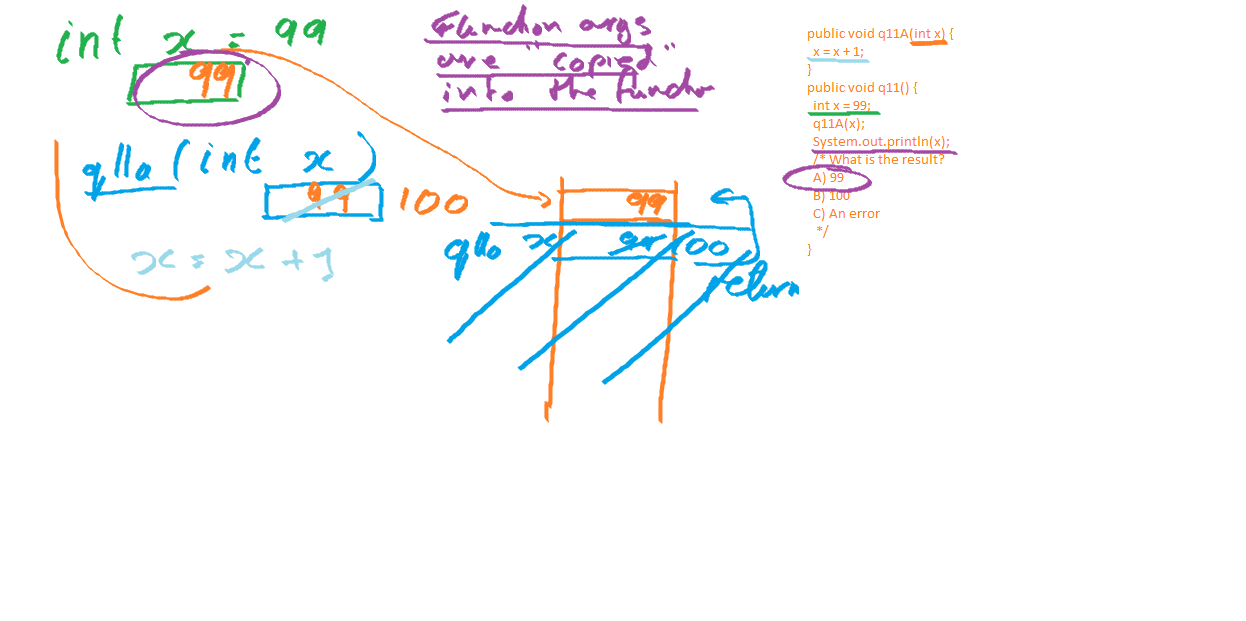 int x = 99
99
Function args
are "copied"
into the function
q11a (int x)
99 100
x = x + 1
99
q11a x 99 100
return
public void q11A(int x) {
x = x + 1;
}
public void q11() {
int x = 99;
q11A(x);
System.out.println(x);
/* What is the result?
A) 99
B) 100
C) An error
*/
}